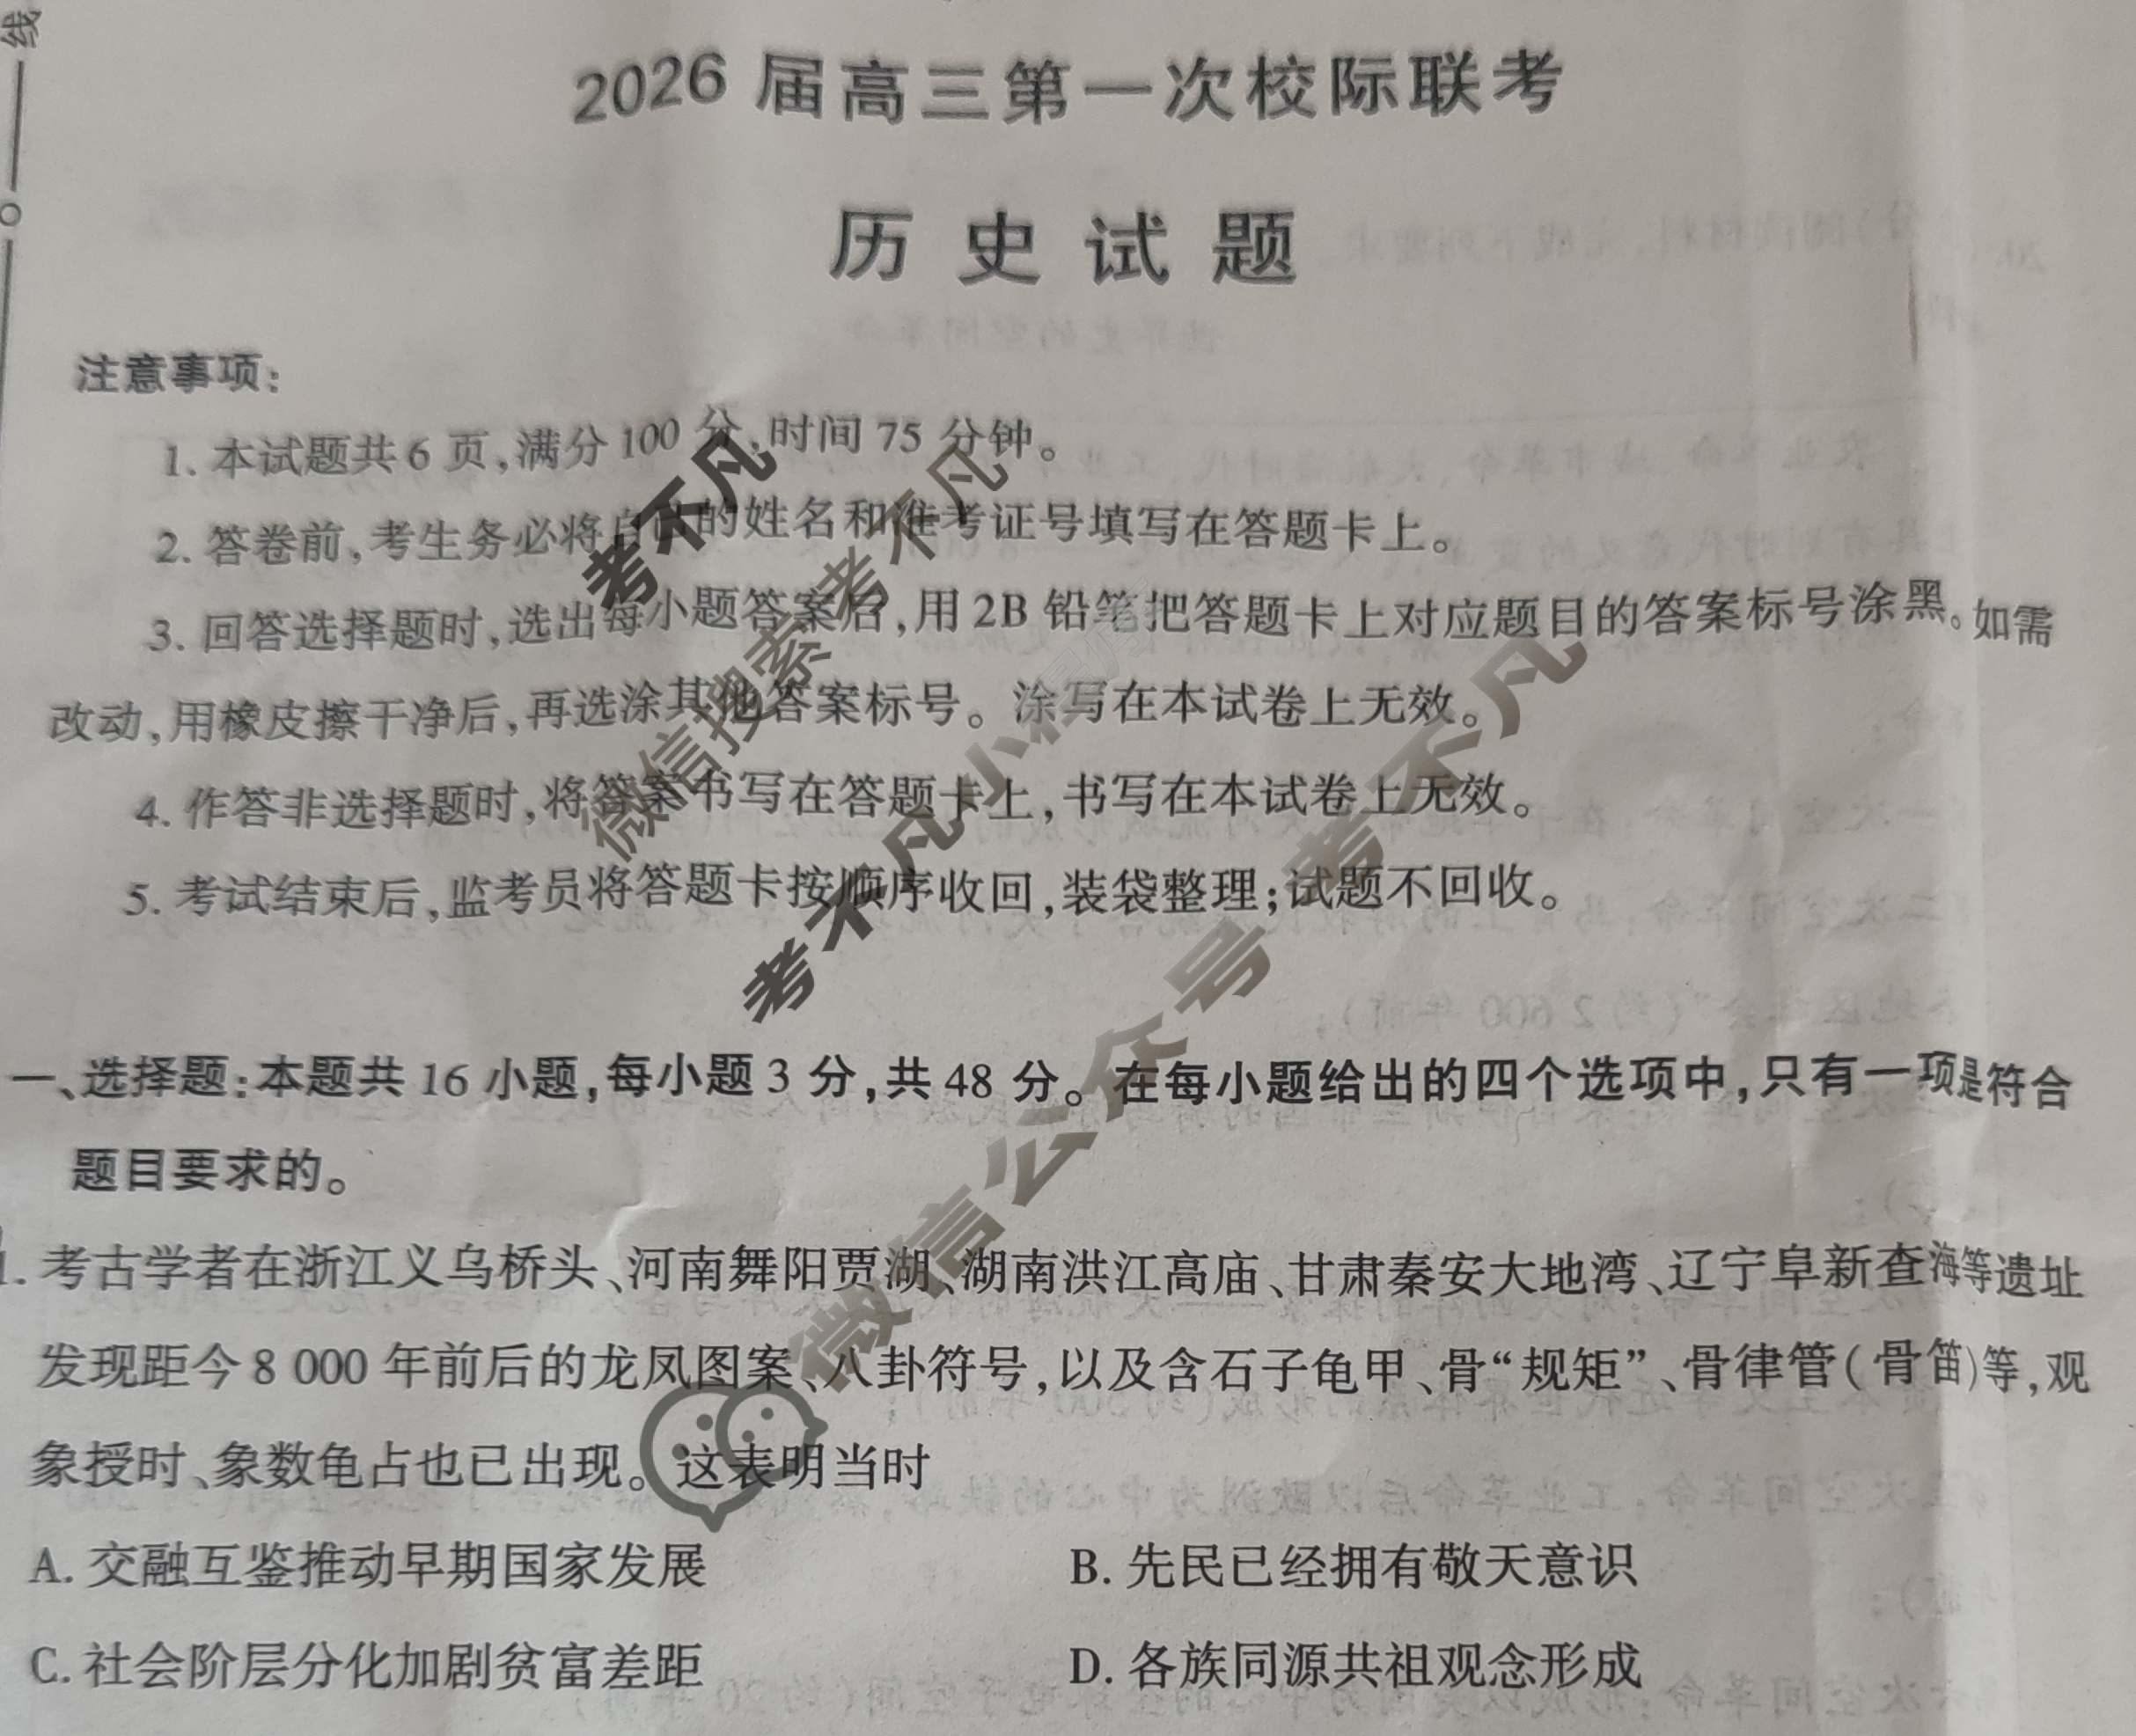 线
2026 届高三第一次校际联考
历史试题
注意事项:
1. 本试题共 6 页,满分 100 分,时间 75 分钟。
2. 答卷前,考生务必将自己的姓名和准考证号填写在答题卡上。
3. 回答选择题时,选出每小题答案后,用 2B 铅笔把答题卡上对应题目的答案标号涂黑。如需
改动,用橡皮擦干净后,再选涂其他答案标号。涂写在本试卷上无效。
4. 作答非选择题时,将答案书写在答题卡上,书写在本试卷上无效。
5. 考试结束后,监考员将答题卡按顺序收回,装袋整理;试题不回收。
考不凡
微信搜索考不凡
考不凡小程序
微信公众号 考不凡
一、选择题:本题共 16 小题,每小题 3 分,共 48 分。在每小题给出的四个选项中,只有一项是符合
题目要求的。
1. 考古学者在浙江义乌桥头、河南舞阳贾湖、湖南洪江高庙、甘肃秦安大地湾、辽宁阜新查海等遗址
发现距今 8 000 年前后的龙凤图案、八卦符号,以及含石子龟甲、骨“规矩”、骨律管(骨笛)等,观
象授时、象数龟占也已出现。这表明当时
A. 交融互鉴推动早期国家发展
B. 先民已经拥有敬天意识
C. 社会阶层分化加剧贫富差距
D. 各族同源共祖观念形成